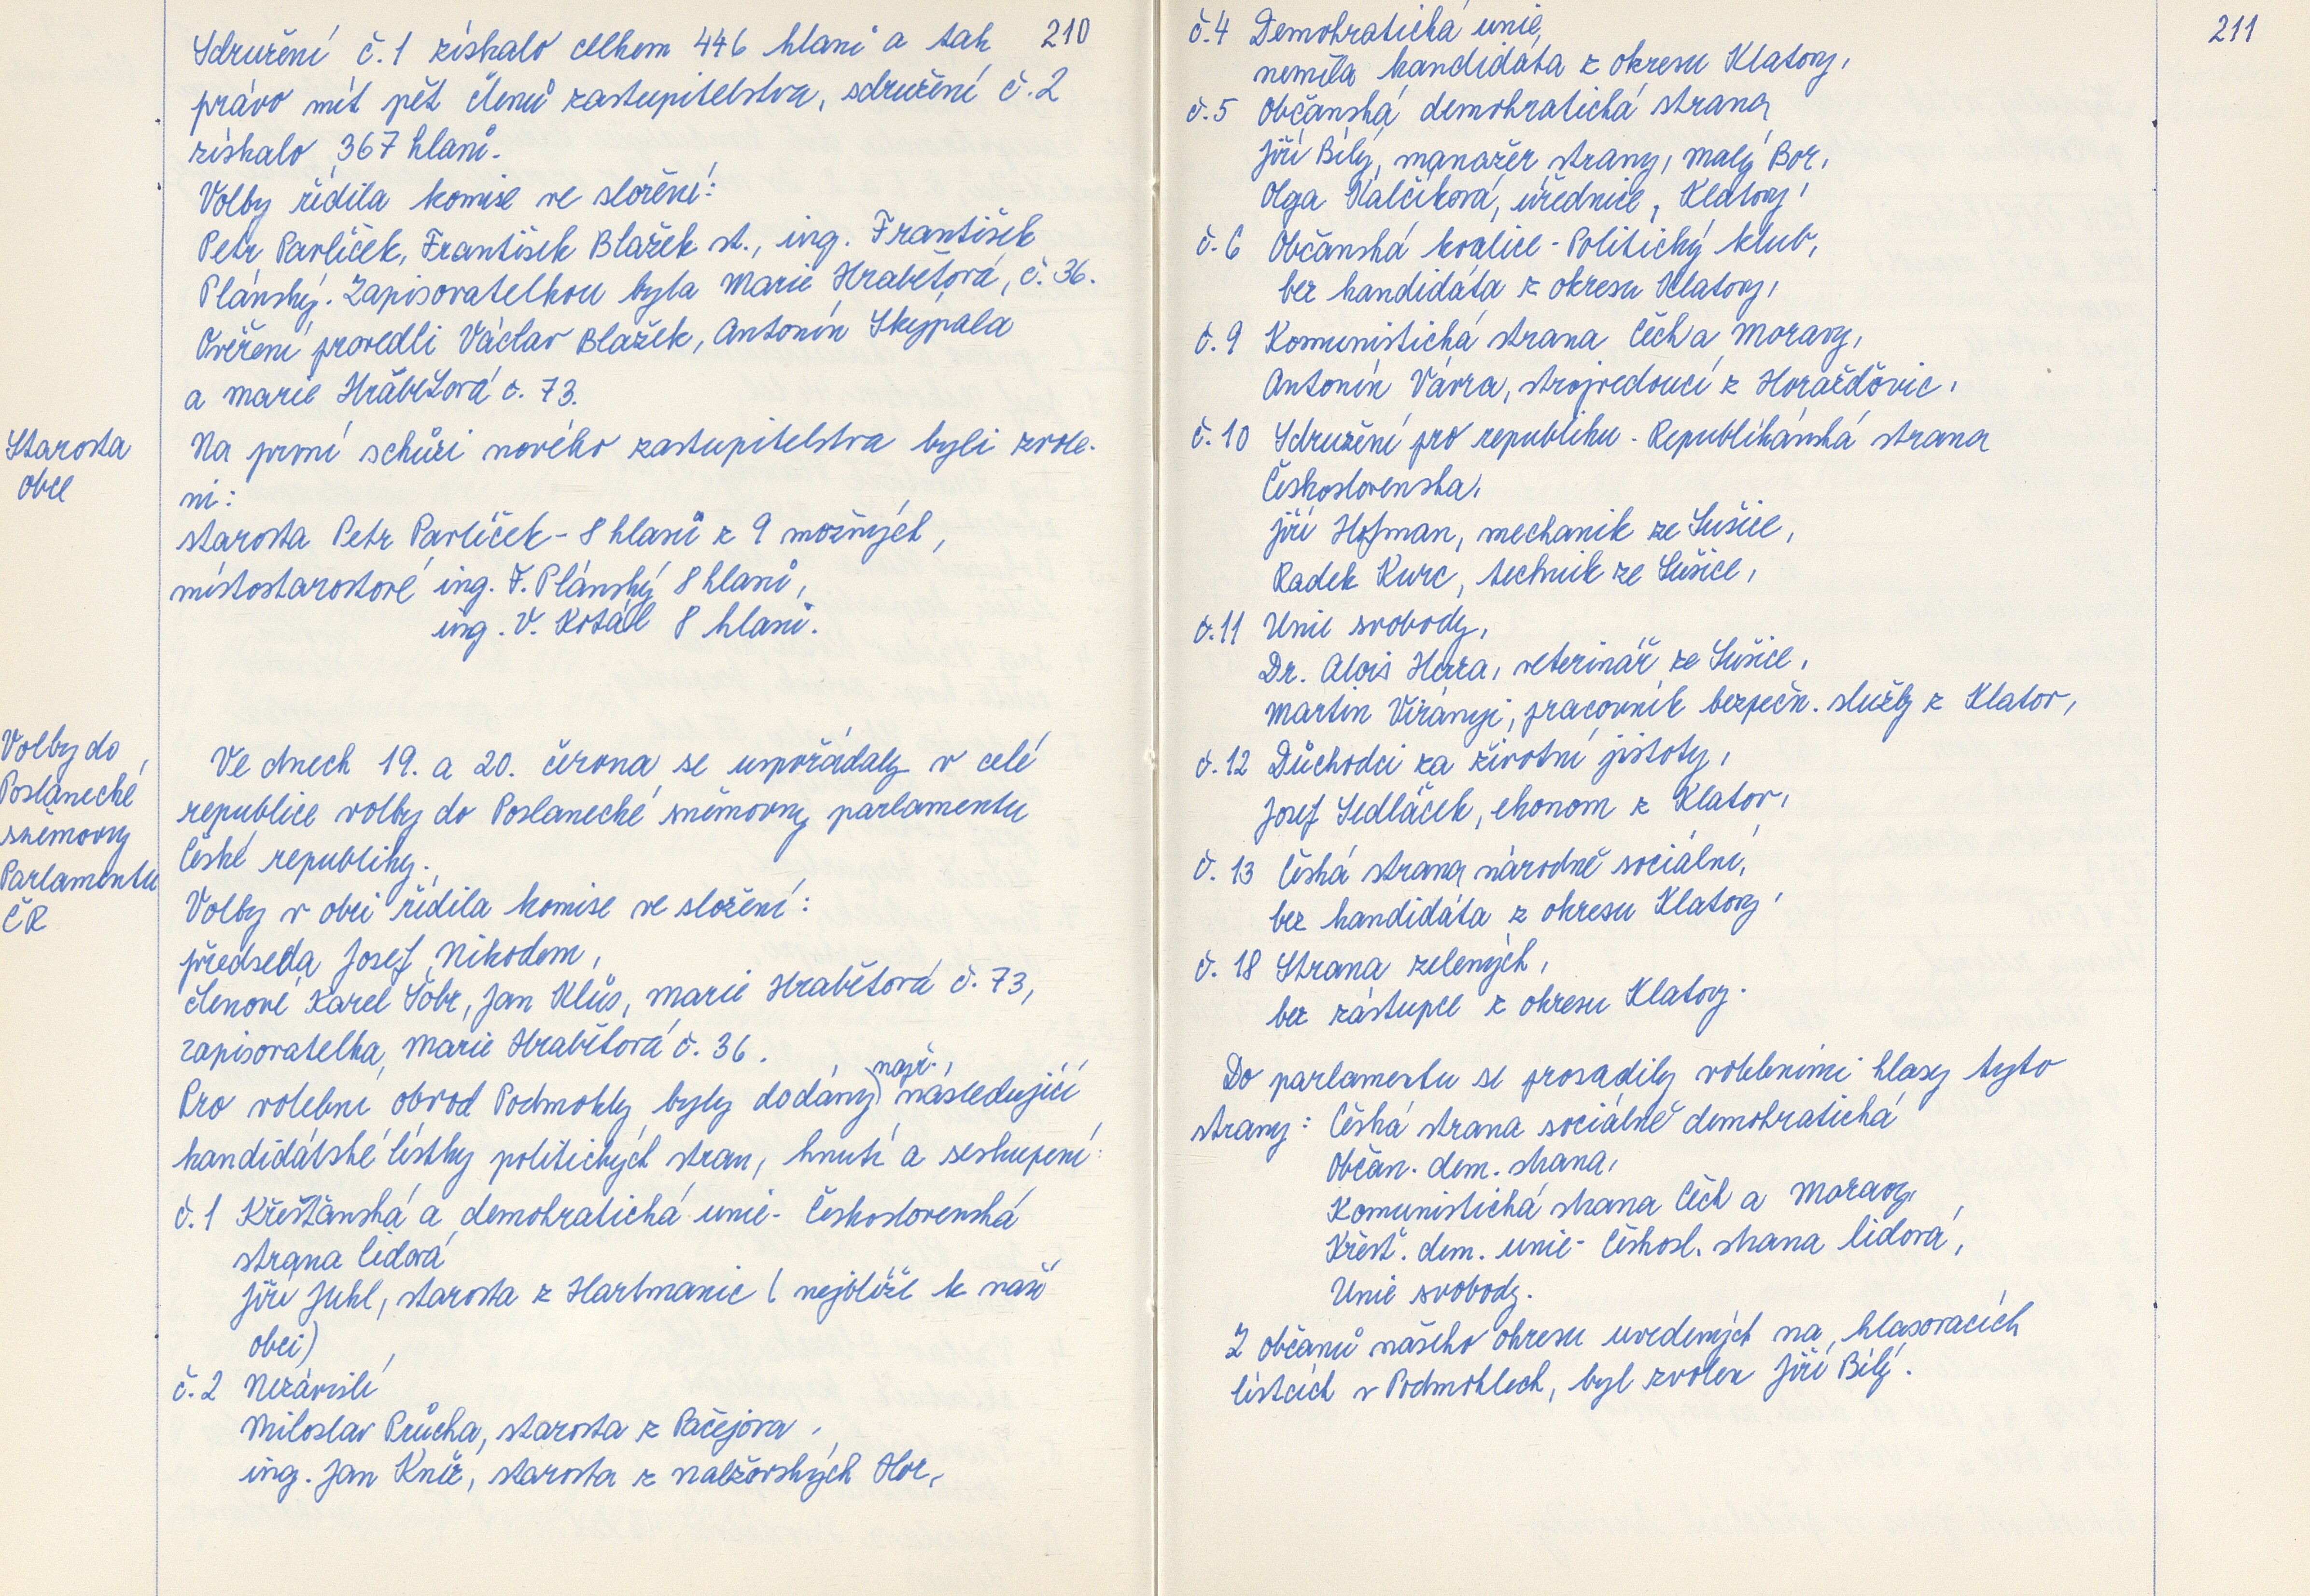 210
Sdružení č.1 získalo celkem 446 hlasů a tak
právo mít pět členů zastupitelstva, sdružení č.2
získalo 367 hlasů.
Volby řídila komise ve složení:
Petr Pavlíček, František Blažek st., ing. František
Plánský. Zapisovatelkou byla Marie Hrabětová, č.36.
Ověření provedli Václav Blažek, Antonín Skýpala
a Marie Hrabětová č. 73.
Starosta
obce
Na první schůzi nového zastupitelstva byli zvole-
ni:
starosta Petr Pavlíček - 8 hlasů z 9 možných,
místostarostové ing. F. Plánský 8 hlasů,
ing. V. Kotál 8 hlasů.
Volby do
Poslanecké
sněmovny
Parlamentu
ČR
Ve dnech 19. a 20. června se uspořádaly v celé
republice volby do Poslanecké sněmovny parlamentu
České republiky.
Volby v obci řídila komise ve složení:
předseda Josef Nikodem,
členové Karel Šobr, Jan Klůs, Marie Hrabětová č. 73,
zapisovatelka, Marie Hrabětová č. 36.
např.
Pro volební obvod Podmokly byly dodány) následující
kandidátské lístky politických stran, hnutí a seskupení:
č.1 Křesťanská a demokratická unie - Československá
strana lidová
Jiří Juhl, starosta z Hartmanic ( nejblíže k naší
obci)
č.2 Nezávislí
Miloslav Průcha, starosta z Pačejova,
ing. Jan Kníž, starosta z Nalžovských Hor,
211
č.4 Demokratická unie,
neměla kandidáta z okresu Klatovy,
č.5 Občanská demokratická strana
Jiří Bílý, manažer strany, Malý Bor,
Olga Kalčíková, úřednice, Klatovy,
č.6 Občanská koalice - Politický klub,
bez kandidáta z okresu Klatovy,
č.9 Komunistická strana Čech a Moravy,
Antonín Vávra, strojvedoucí z Horažďovic,
č.10 Sdružení pro republiku - Republikánská strana
Československa,
Jiří Hofman, mechanik ze Sušice,
Radek Kurc, technik ze Sušice,
č.11 Unie svobody,
Dr. Alois Hora, veterinář ze Sušice,
Martin Virányi, pracovník bezpečn. služby z Klatov,
č.12 Důchodci za životní jistoty,
Josef Sedláček, ekonom z Klatov,
č. 13 Česká strana národně sociální,
bez kandidáta z okresu Klatovy,
č. 18 Strana zelených,
bez zástupce z okresu Klatovy.
Do parlamentu se prosadily volebními hlasy tyto
strany: Česká strana sociálně demokratická
Občan. dem. strana,
Komunistická strana Čech a Moravy,
Křesť. dem. unie - Českosl. strana lidová,
Unie svobody.
Z občanů našeho okresu uvedených na hlasovacích
lístcích v Podmoklech, byl zvolen Jiří Bílý.